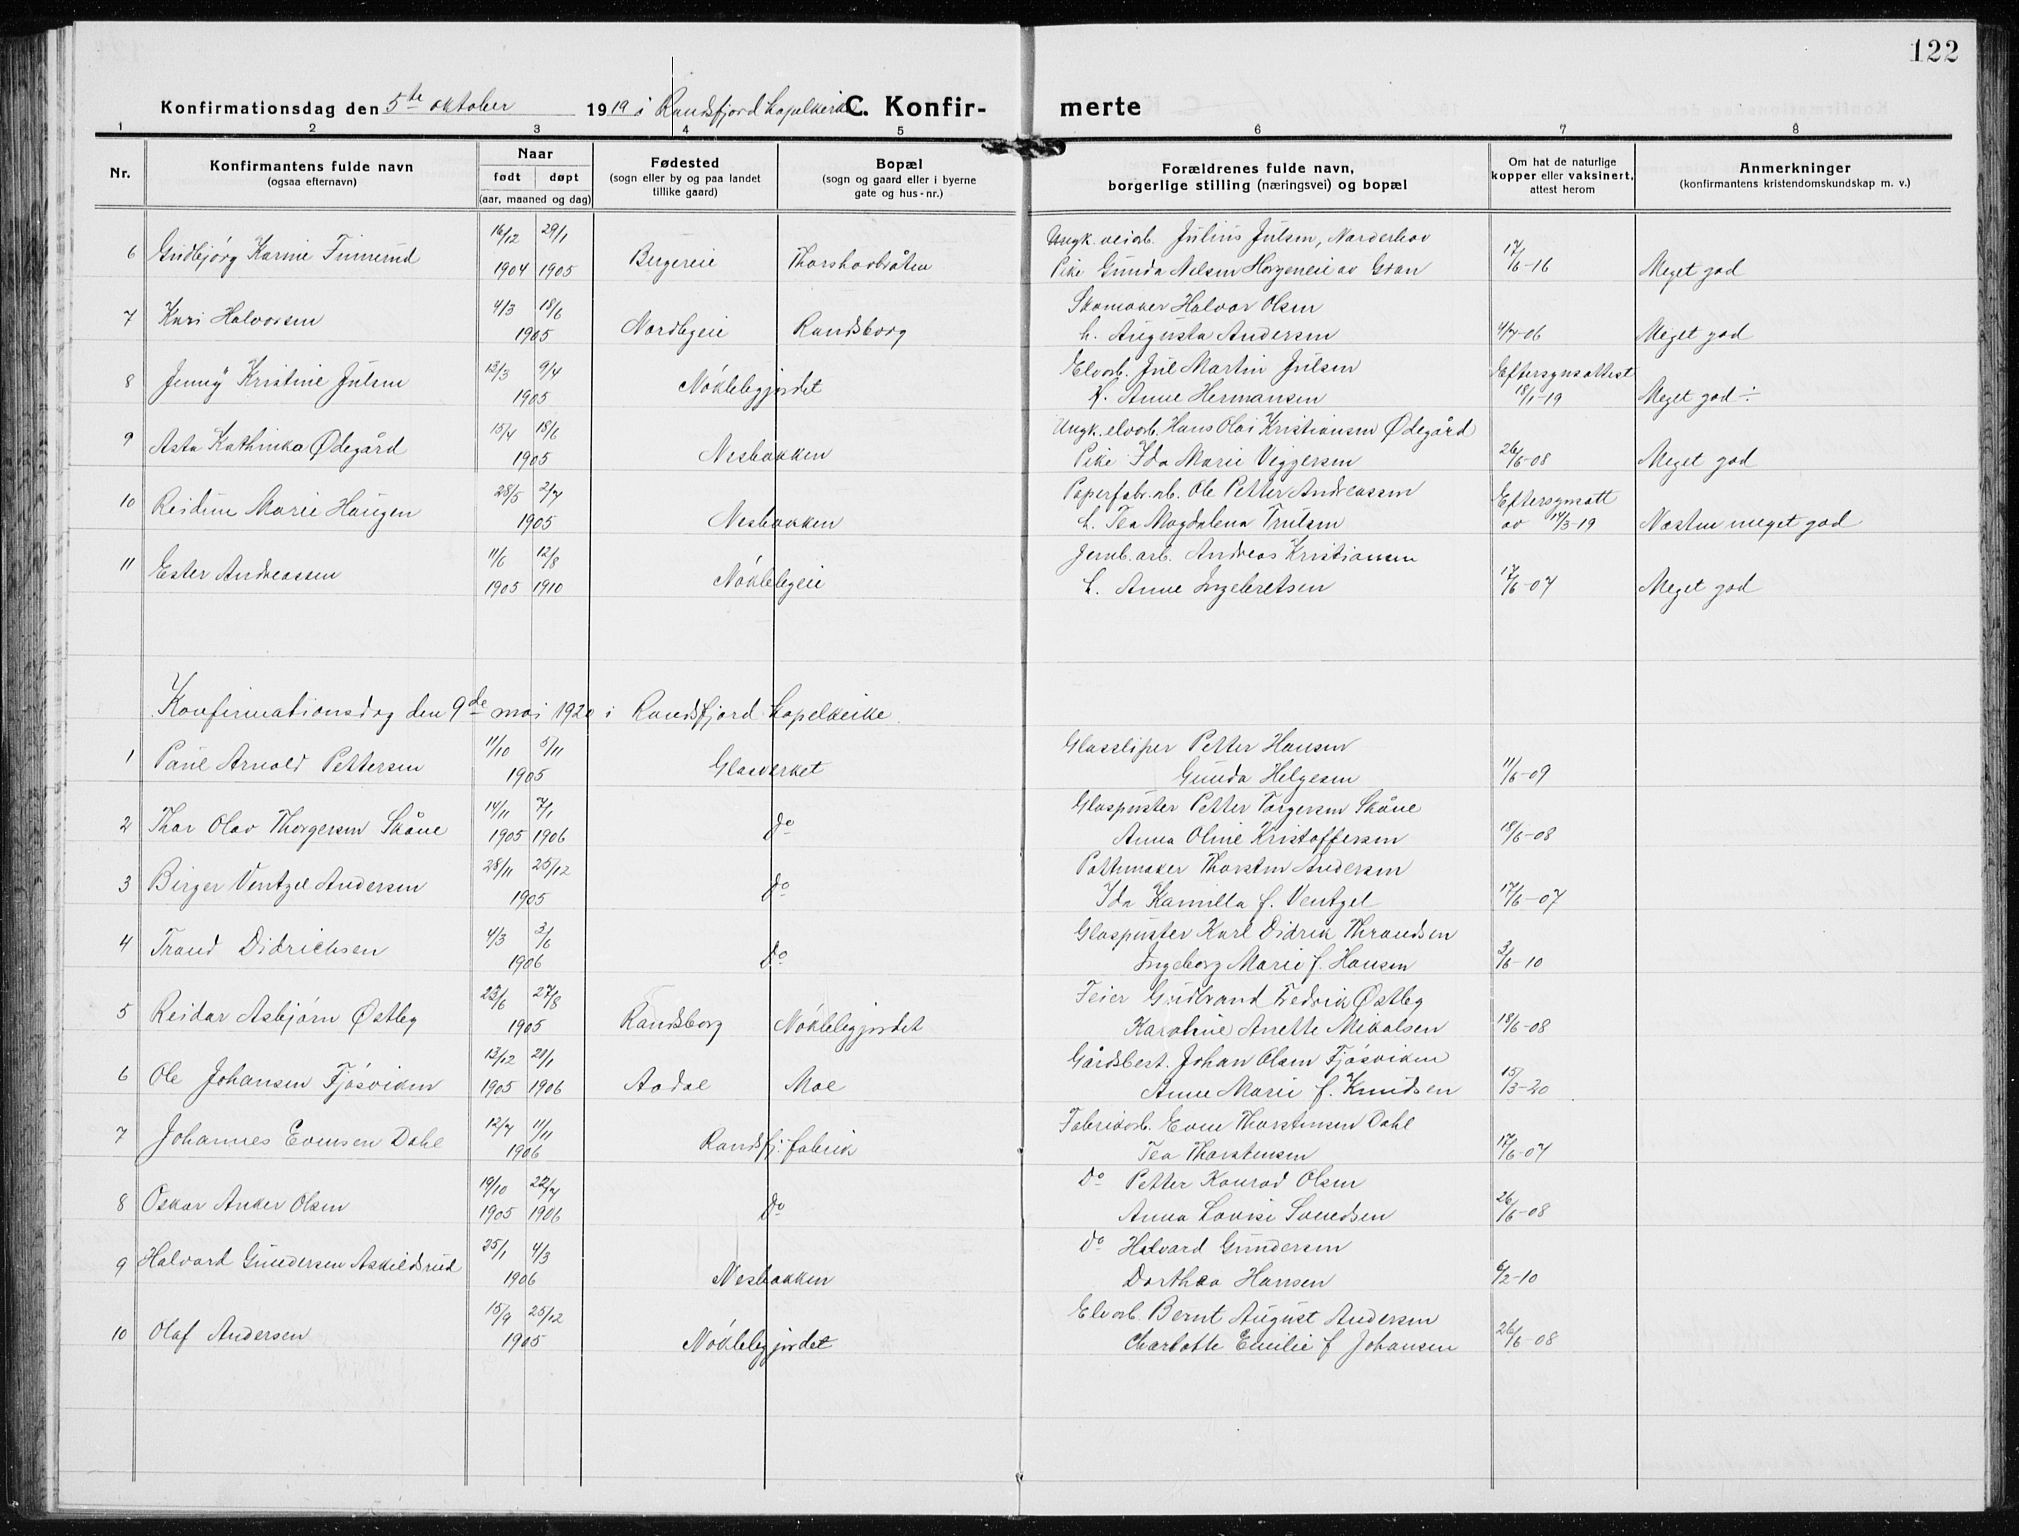 122
Konfirmationsdag den 5te oktober 1919 i Randsfjord kapelkirke. C. Konfir- merte
1 2 3 4 5 6 7 8
Nr. Konfirmantens fulde navn (ogsaa efternavn) Naar født døpt (aar, maaned og dag) Fødested (sogn eller by og paa landet tillike gaard) Bopæl (sogn og gaard eller i byerne gate og hus-nr.) Forældrenes fulde navn, borgerlige stilling (næringsvei) og bopæl Om hat de naturlige kopper eller vaksinert, attest herom Anmerkninger (konfirmantens kristendomskundskap m. v.)
16/12 29/1 Ungk. veiarb. Julius Julsen, Norderhov
6 Gudbjørg Karine Finnerud 1904 1905 Bergereie Thorshovbråten Pike Gunda Nilsen Horgeneie av Gran 17/6-16 Meget god
4/3 18/6 Skomaker Halvor Olsen
7 Kari Halvorsen 1905 Nordbyeie Randsborg h. Augusta Andersen 4/7-06 Meget god
13/3 9/4 Elvarb. Jul Martin Julsen Eftersynsattest
8 Jenny Kristine Julsen 1905 Nøklebygjordet h. Anne Hermansen 18/1-19 Meget god ÷
15/4 18/6 Ungk. elvarb. Hans Olai Kristiansen Ødegård
9 Asta Kathinka Ødegård 1905 Nesbakken Pike Ida Marie Viggersen 26/6-08 Meget god
28/5 2/7 Papirfabr. arb. Ole Petter Andreassen Eftersynsatt
10 Reidun Marie Haugen 1905 Nesbakken h. Tea Magdalena Trulsen av 14/3-19 Næsten meget god
11/6 12/8 Jernb. arb. Andreas Kristiansen
11 Ester Andreassen 1905 1910 Nøklebyeie h. Anne Ingebretsen 17/6-07 Meget god
Konfirmationsdag den 9de mai 1920 i Randsfjord kapelkirke.
11/10 5/11 Glassliper Petter Hansen
1 Paul Arnold Pettersen 1905 Glasværket Gunda Helgesen 11/6-09
14/11 7/1 Glaspuster Petter Torgersen Skåne
2 Thor Olav Thorgersen Skåne 1905 1906 Do Anna Oline Kristoffersen 18/6-08
28/11 25/12 Pottemaker Thorsten Andersen
3 Birger Ventzel Andersen 1905 Do Ida Kamilla f. Ventzel 17/6-07
4/3 3/6 Glaspuster Karl Didrik Throndsen
4 Trond Didrichsen 1906 Do Ingeborg Marie f. Hansen 3/6-10
23/6 27/8 Feier Gudbrand Fredrik Østby
5 Reidar Asbjørn Østby 1905 Randsborg Nøklebygjordet Karoline Anette Mikalsen 18/6-08
13/12 28/1 Gårdsbest. Johan Olsen Fjøsviken
6 Ole Johansen Fjøsviken 1905 1906 Aadal Moe Anne Marie f. Knudsen 15/3-20
12/7 11/11 Fabrikarb. Even Thorstensen Dahl
7 Johannes Evensen Dahl 1906 Randsfj. fabrik Tea Thorstensen 17/6-07
19/10 22/7 Do Petter Konrad Olsen
8 Oskar Anker Olsen 1905 1906 Do Anna Lovise Svendsen 26/6-08
25/1 4/3 Do Halvard Gundersen
9 Halvard Gundersen Askildsrud 1906 Nesbakken Dorthea Hansen 6/2-10
15/9 25/12 Elvarb. Bernt August Andersen
10 Olaf Andersen 1905 Nøklebygjordet Charlotte Emilie f Johansen 26/6-08